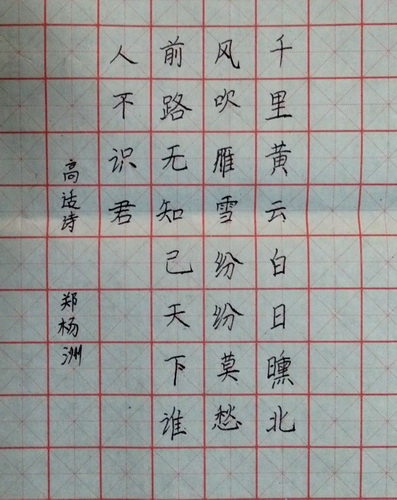 千里黄云白日曛北
风吹雁雪纷纷莫愁
前路无知己天下谁
人不识君
高适诗
郑杨洲